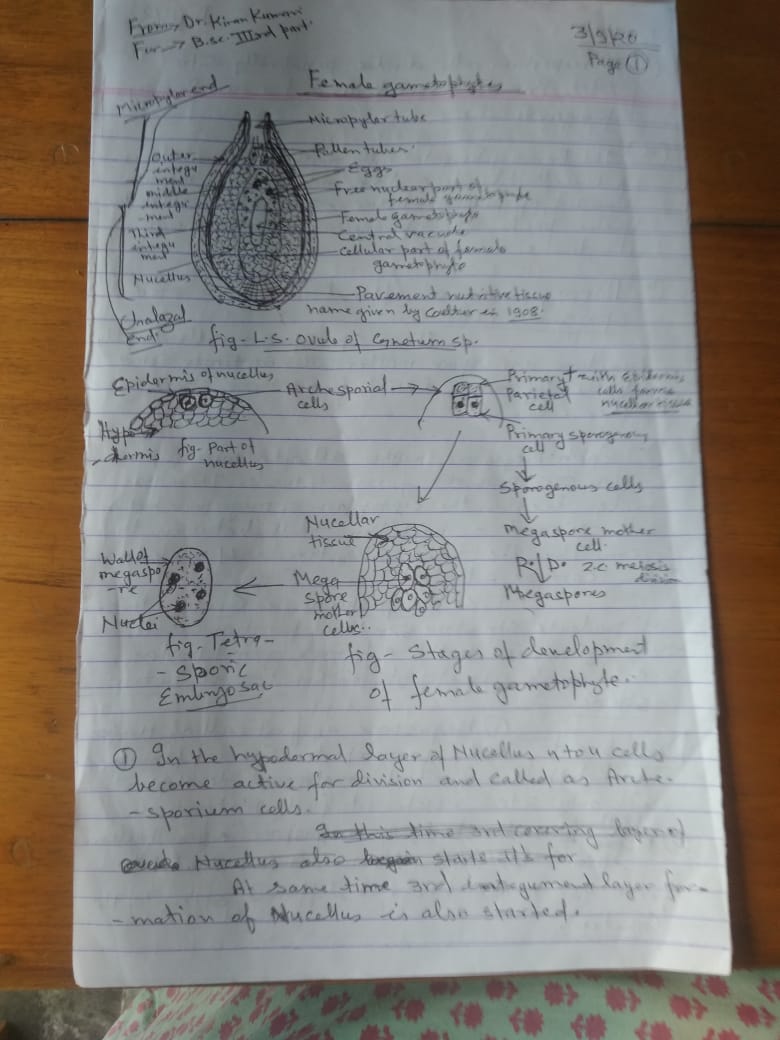 From → Dr. Kiran Kumari
For → B.Sc. IIIrd part.
3/9/20
Page ①
Female gametophytes
Micropylar end
Micropylar tube
Pollen tubes
Eggs
Outer integu
ment
middle
integu
-ment
Third
integu
ment
Nucellus
Free nuclear part of
female gametophyte
Female gametophyte
Central vacuole
Cellular part of female
gametophyte
Pavement nutritive tissue
name given by Coulter in 1908.
Chalazal
end.
fig- L.S. ovule of Gnetum sp.
Epidermis of nucellus
Archesporial
cells
Hypo
dermis
fig- Part of
nucellus
Primary
Parietal
cell
+ with Epidermis
cells forms
nucellar tissue
Primary sporogenous
cell
Sporogenous cells
Megaspore mother
cell.
R. D. i.e. meiosis
division
Megaspores
Nucellar
tissue
Mega
spore
mother
cells..
Wall of
megaspo
-re
Nuclei
fig- Tetra-
- sporic
Embryo sac
fig- Stages of development
of female gametophyte.
① In the hypodermal layer of Nucellus 2 to 4 cells
become active for division and called as Arche-
-sporium cells.
In this time 3rd covering layer of
Nucellus also starts its for
At same time 3rd integument layer for-
-mation of Nucellus is also started.